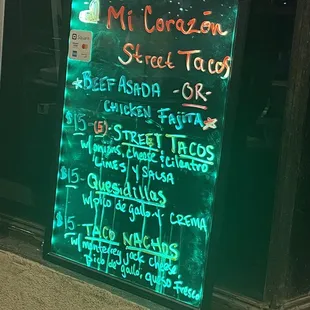 Mi Corazón
Street Tacos
BEEF ASADA
-OR-
CHICKEN FAJITA
$15 - (5) - STREET TACOS
w/onions, cheese & cilantro
Limes y SALSA
$15 - Quesidillas
w/pico de gallo y CREMA
$15 - TACO NACHOS
w/monterey jack cheese
Pico de gallo, queso Fresco